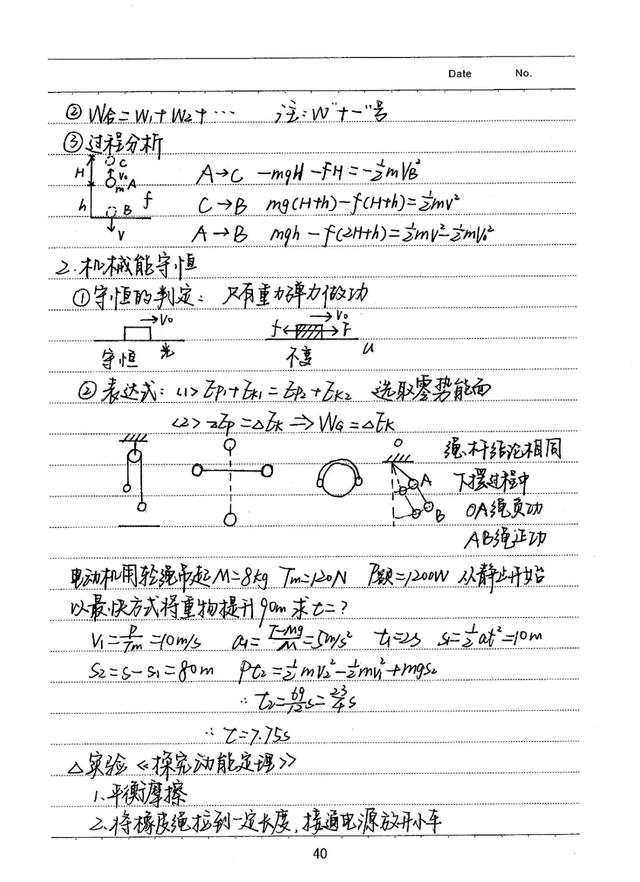 Date No.
② W合=W1+W2+… 注:W"+-"号
③过程分析
C
H V0
m A A→C -mgH-fH=-½mVB²
h f
B C→B mg(H+h)-f(H+h)=½mv²
V A→B mgh-f(2H+h)=½mv²-½mv0²
2.机械能守恒
①守恒的判定: 只有重力弹力做功
→V0 →V0
f F
守恒 光 不变 u
②表达式:<1>EP1+EK1=EP2+EK2 选取零势能面
<2>-△EP=△EK⇒WG=△EK
O 绳.杆结论相同
A 下摆过程中
B OA绳负功
AB绳正功
电动机用轻绳吊起M=8kg Tm=120N P额=1200W 从静止开始
以最快方式将重物提升90m求t=?
V1=P/Tm=10m/s a1=(T-Mg)/M=5m/s² t1=2s s1=½at²=10m
S2=S-S1=80m Pt2=½mv2²-½mv1²+mgs2
∴t2=69/12s=23/4s
∴t=7.75s
△实验《探究动能定理》
1.平衡摩擦
2.将橡皮绳拉到一定长度,接通电源放开小车
40